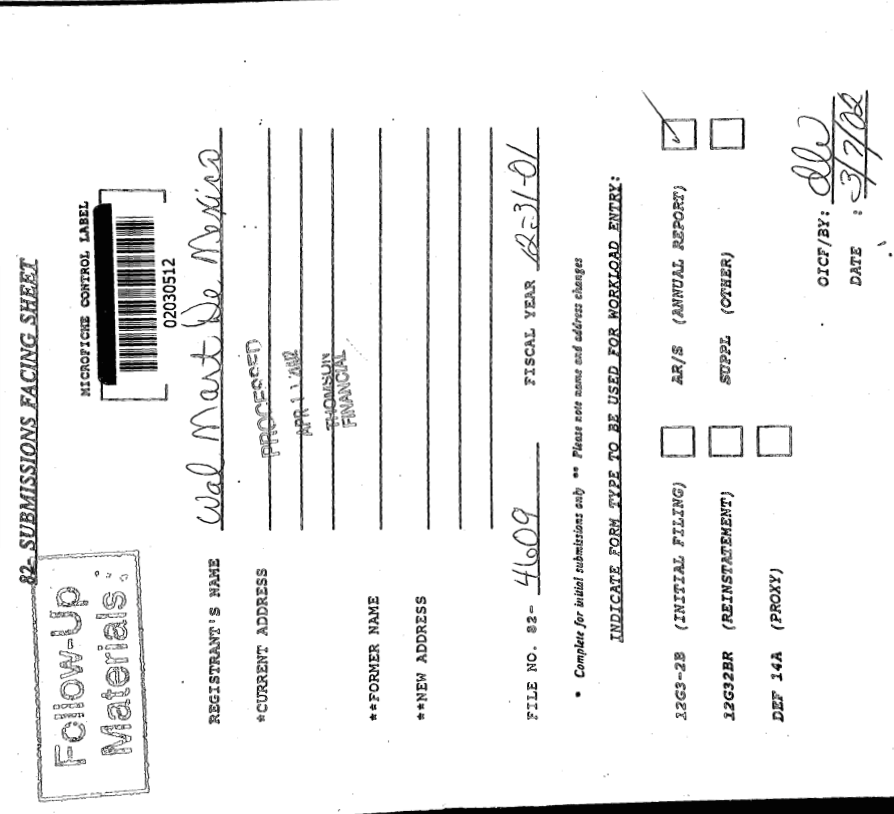 82- SUBMISSIONS FACING SHEET
Follow-Up
Materials
MICROFICHE CONTROL LABEL
02030512
REGISTRANT'S NAME Wal Mart De Mexico
*CURRENT ADDRESS
PROCESSED
APR 1 1 2002
THOMSON
FINANCIAL
**FORMER NAME
**NEW ADDRESS
FILE NO. 82- 4609 FISCAL YEAR 12-31-01
* Complete for initial submissions only ** Please note name and address changes
INDICATE FORM TYPE TO BE USED FOR WORKLOAD ENTRY:
12G3-2B (INITIAL FILING) AR/S (ANNUAL REPORT)
12G32BR (REINSTATEMENT) SUPPL (OTHER)
DEF 14A (PROXY)
OICF/BY: dlw
DATE : 3/7/02